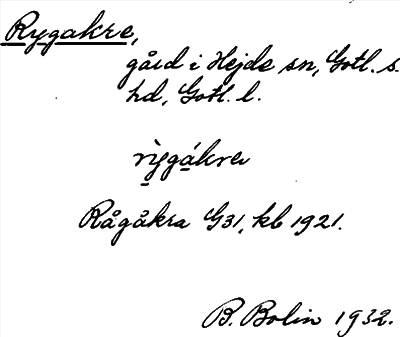 Rygakre,
gård i Hejde sn, Gotl. s.
hd, Gotl. l.
rỳgákrɐ
Rågåkra G31, kb 1921.
B. Bolin 1932.